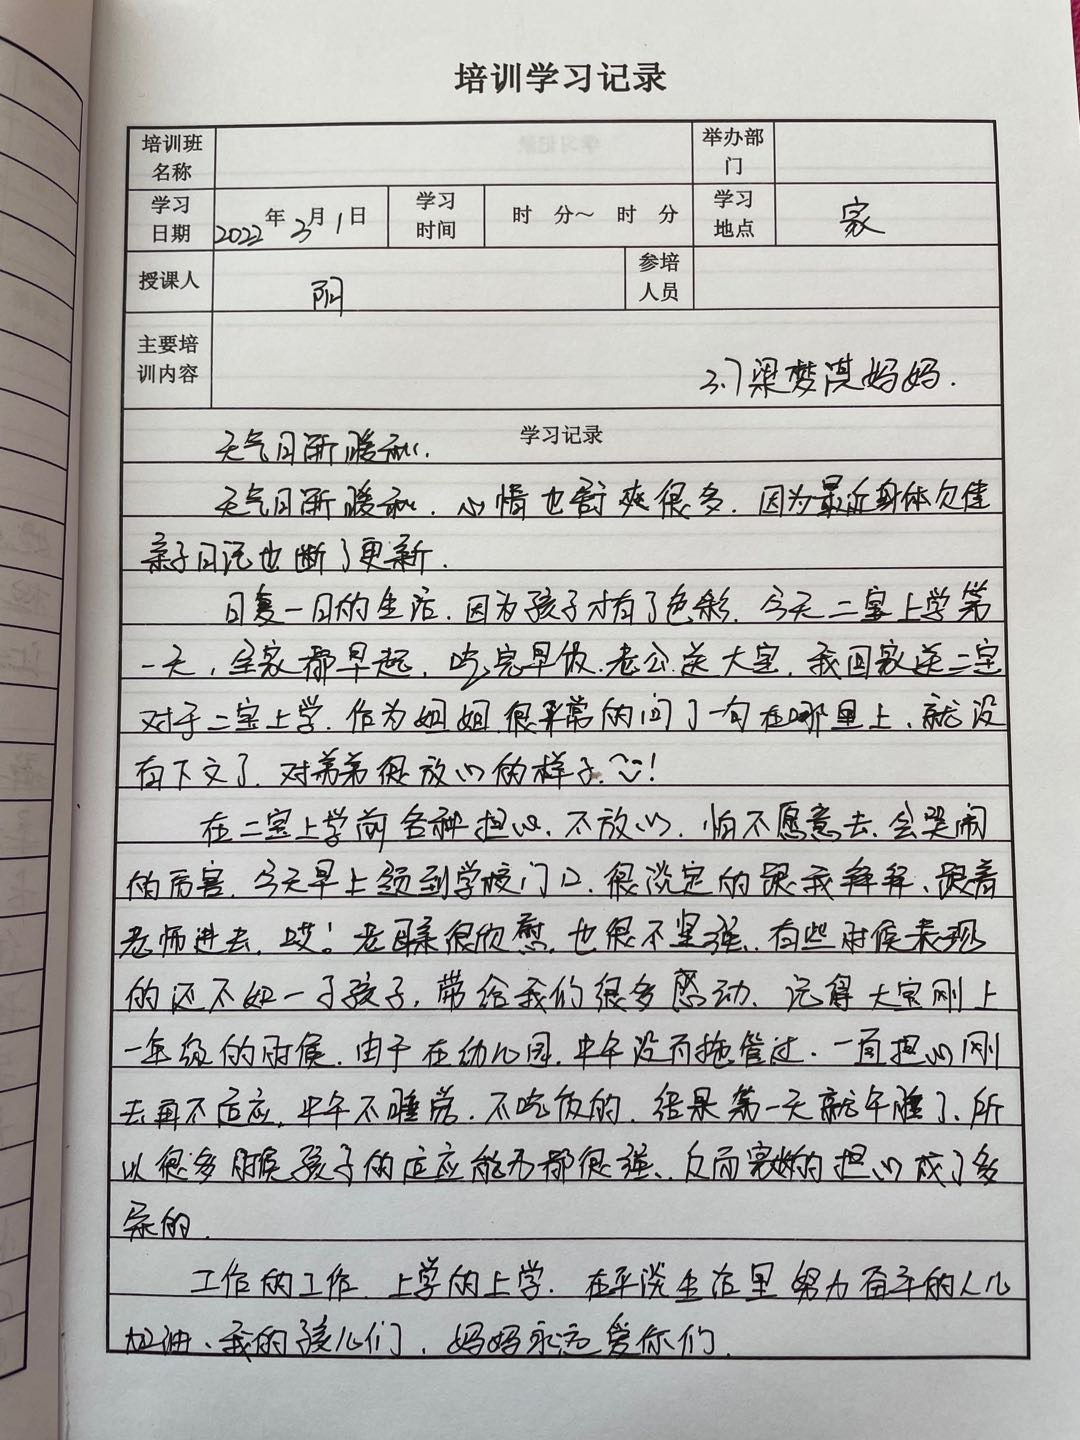 培训学习记录
培训班名称
举办部门
学习日期 2022年3月1日 学习时间 时 分～ 时 分 学习地点 家
授课人 阴 参培人员
主要培训内容
3.1梁梦淇妈妈.
学习记录
天气日渐暖和.
天气日渐暖和.心情也舒爽很多.因为最近身体欠佳
亲子日记也断了更新.
日复一日的生活.因为孩子才有了色彩.今天二宝上学第
一天,全家都早起,吃完早饭.老公送大宝,我回家送二宝
对于二宝上学.作为姐姐.很平常的问了一句在哪里上、就没
有下文了.对弟弟很放心的样子.!
在二宝上学前各种担心、不放心.怕不愿意去.会哭闹
的厉害.今天早上领到学校门口.很淡定的跟我拜拜、跟着
老师进去.哎!老母亲很欣慰.也很不坚强.有些时候表现
的还不如一个孩子.带给我们很多感动.记得大宝刚上
一年级的时候.由于在幼儿园.中午没有托管过.一直担心刚
去再不适应.中午不睡觉.不吃饭的.结果第一天就午睡了、所
以很多时候孩子的适应能力都很强、反而家长的担心成了多
余的.
工作的工作.上学的上学.在平淡生活里努力奋斗的人儿
加油、我的孩儿们,妈妈永远爱你们.